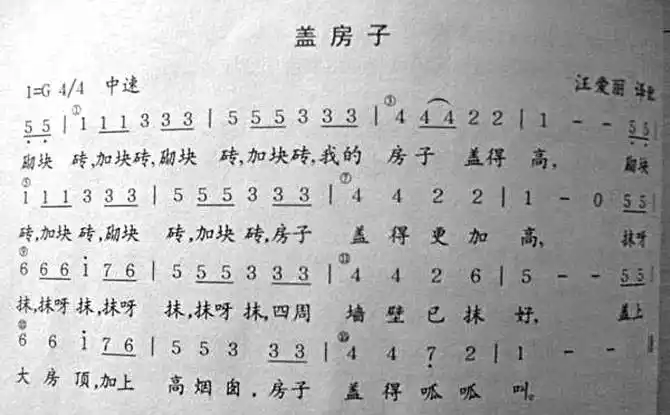 盖房子
1=G 4/4 中速 汪爱丽 译配
5 5 | ① 1 1 1 3 3 3 | 5 5 5 3 3 3 | ③ 4 4 4 2 2 | 1 - - 5 5
砌块 砖,加块砖,砌块 砖,加块砖,我的 房子 盖得 高, 砌块
⑤ 1 1 1 3 3 3 | 5 5 5 3 3 3 | ⑦ 4 4 2 2 | 1 - 0 5 5
砖,加块砖,砌块 砖,加块砖,房子 盖得更加 高, 抹呀
⑨ 6 6 6 1 7 6 | 5 5 5 3 3 3 | ⑪ 4 4 2 6 | 5 - - 5 5
抹,抹呀抹,抹呀 抹,抹呀抹,四周 墙壁已抹 好, 盖上
6 6 1 7 6 | 5 5 3 3 3 | 4 4 7 2 | 1 - -
大房顶,加上 高烟囱,房子 盖得呱呱 叫。